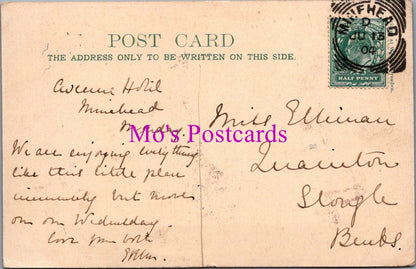 POST CARD
THE ADDRESS ONLY TO BE WRITTEN ON THIS SIDE.
MINEHEAD
JU 15
04
HALF PENNY
Avenue Hotel
Minehead
Monday.
We are enjoying everything
like this little place
immensely but move
on on Wednesday
love you both
Miss Elliman
Quainton
Slough
Bucks.
Mo's Postcards